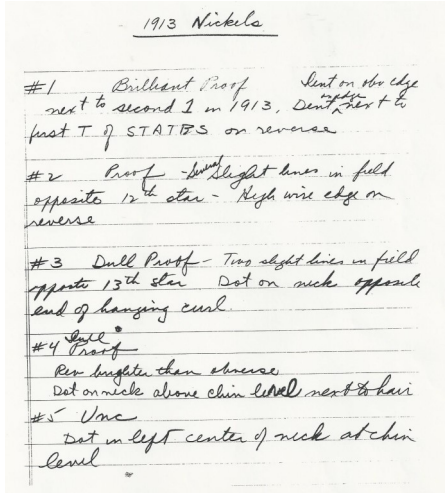 1913 Nickels
#1 Brilliant Proof Dent on obv edge
next to second 1 in 1913, Dent on edge next to
first T of STATES on reverse
#2 Proof - Several Slight lines in field
opposite 12th star - High wire edge on
reverse
#3 Dull Proof - Two slight lines in field
opposite 13th star Dot on neck opposite
end of hanging curl.
#4 Dull Proof
Rev brighter than obverse
Dot on neck above chin level next to hair
#5 Unc
Dot in left center of neck at chin
level